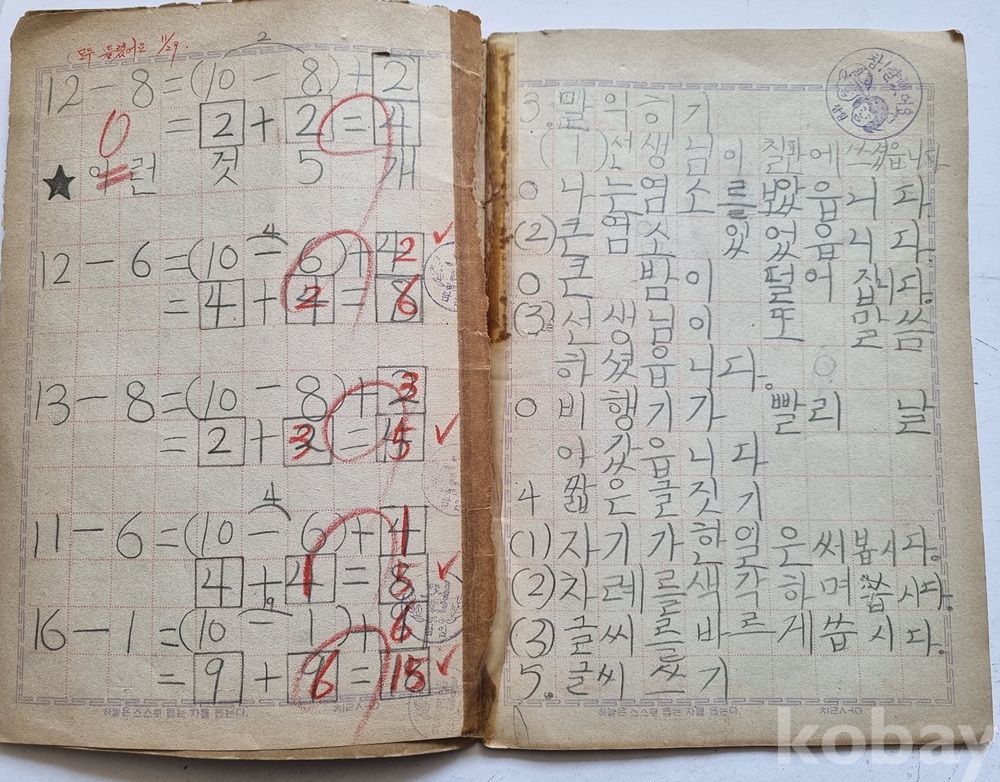 모두 틀렸어요 11/29.
2
12-8=(10-8)+2
0
=2+2=4
★ 틀린 것 5 개
4
12-6=(10-6)+2
=4+2=6
13-8=(10-8)+3
=2+3=5
4
11-6=(10-6)+1
4+1=5
9
16-1=(10-1)+6
=9+6=15
하늘은 스스로 돕는 자를 돕는다.
3. 말 익히기
(1) 선생님이 칠판에 쓰셨읍니다
0 나는 염소를 보았읍니다.
(2) 큰 염소 있었읍니다.
0 큰 밤이 털어집니다.
(3) 선생님이 또 말씀
하셨읍니다.
0 비행기가 빨리 날
아갔읍니다
4 짧은글짓기
(1) 자기가 한일은 써봅시다.
(2) 차레를색각하며씁시다.
(3) 글씨를바르게씁시다.
5. 글씨쓰기
하늘은 스스로 돕는 자를 돕는다.
kobay